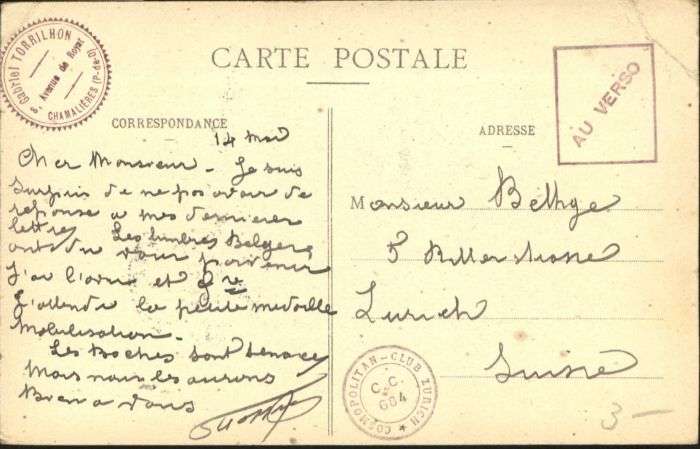 Gabriel TORRILHON
Avenue de Royat
CHAMALIÈRES (P-de-D)
CARTE POSTALE
AU VERSO
CORRESPONDANCE
ADRESSE
14 Mai
Cher Monsieur - Je suis
surpris de ne pas avoir de
réponse a mes dernieres
lettres Les timbres Belges
ont du vous parvenir
J'ai l'ocre et
J'attends la petite medaille
Mobilisation -
Les Boches sont tenaces
Mais nous les aurons
Bien a vous
Monsieur Bethge
5 Ritterstrasse
Zurich
Suisse
COSMOPOLITAN-CLUB ZURICH
C.C.
664
3 -